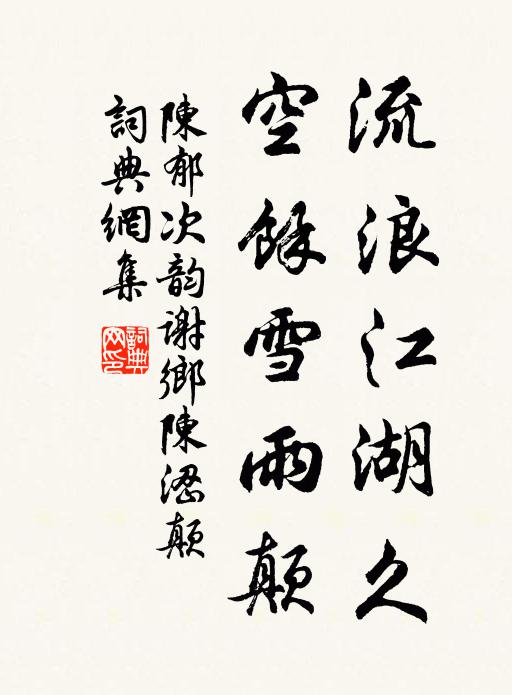 流浪江湖久
空餘雪雨顛
陳郁次韵謝鄉陳浥顛
詞典網集
詞典網印